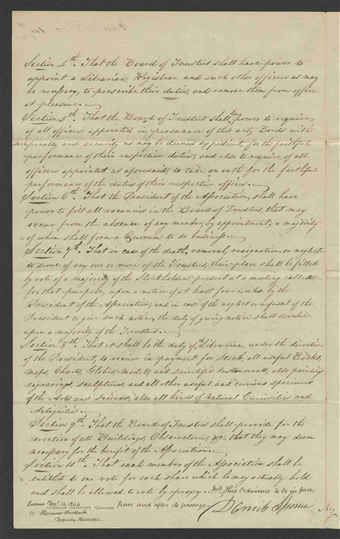 Section 4th. That the Board of Trustees shall have power to
appoint a Librarian, Registrar and such other officers as may
be necessary, to prescribe their duties, and remove them from office
at pleasure.
Section 5th. That the Board of Trustees shall have power to require
of all officers appointed in pursuance of this act, Bonds with
penalty and security as may be deemed expedient, for the faithful
performance of their respective duties; and also to require of all
officers appointed as aforesaid, to take an oath for the faithful
performance of the duties of their respective offices.
Section 6th. That the President of the Association, shall have
power to fill all vacancies in the Board of Trustees, that may
occur from the absence of any member by appointment; a majority
of whom shall form a Quorum to do business.
Section 7th. That in case of the death, removal, resignation or neglect
to serve of any one or more of the Trustees, their place shall be filled
by vote of a majority of the Stockholders present at a meeting called
for that purpose, upon a notice of at least four weeks by the
President of the Association, and in case of the neglect or refusal of the
President to give such notice, the duty of giving notice shall devolve
upon a majority of the Trustees.
Section 8th. That it shall be the duty of Librarian, under the direction
of the President, to receive in payment for Stock, all useful Books
Maps, Charts, Globes, Models and scientific Instruments, also paintings
engravings, sculptures, and all other useful and curious specimens
of the Arts and Sciences, also all kinds of Natural Curiosities and
Antiquities.
Section 9th. That the Board of Trustees shall provide for the
erection of all Buildings, Observatories, &c. that they may deem
necessary for the benefit of the Association.
Section 10th. That each member of the Association shall be
entitled to one vote for each share which he may actually hold
and shall be allowed to vote by proxy. This Ordinance to be in force
from and after its passage
Passed Dec. 14, 1844
Thomas Bullock
Deputy Recorder
Daniel Spencer